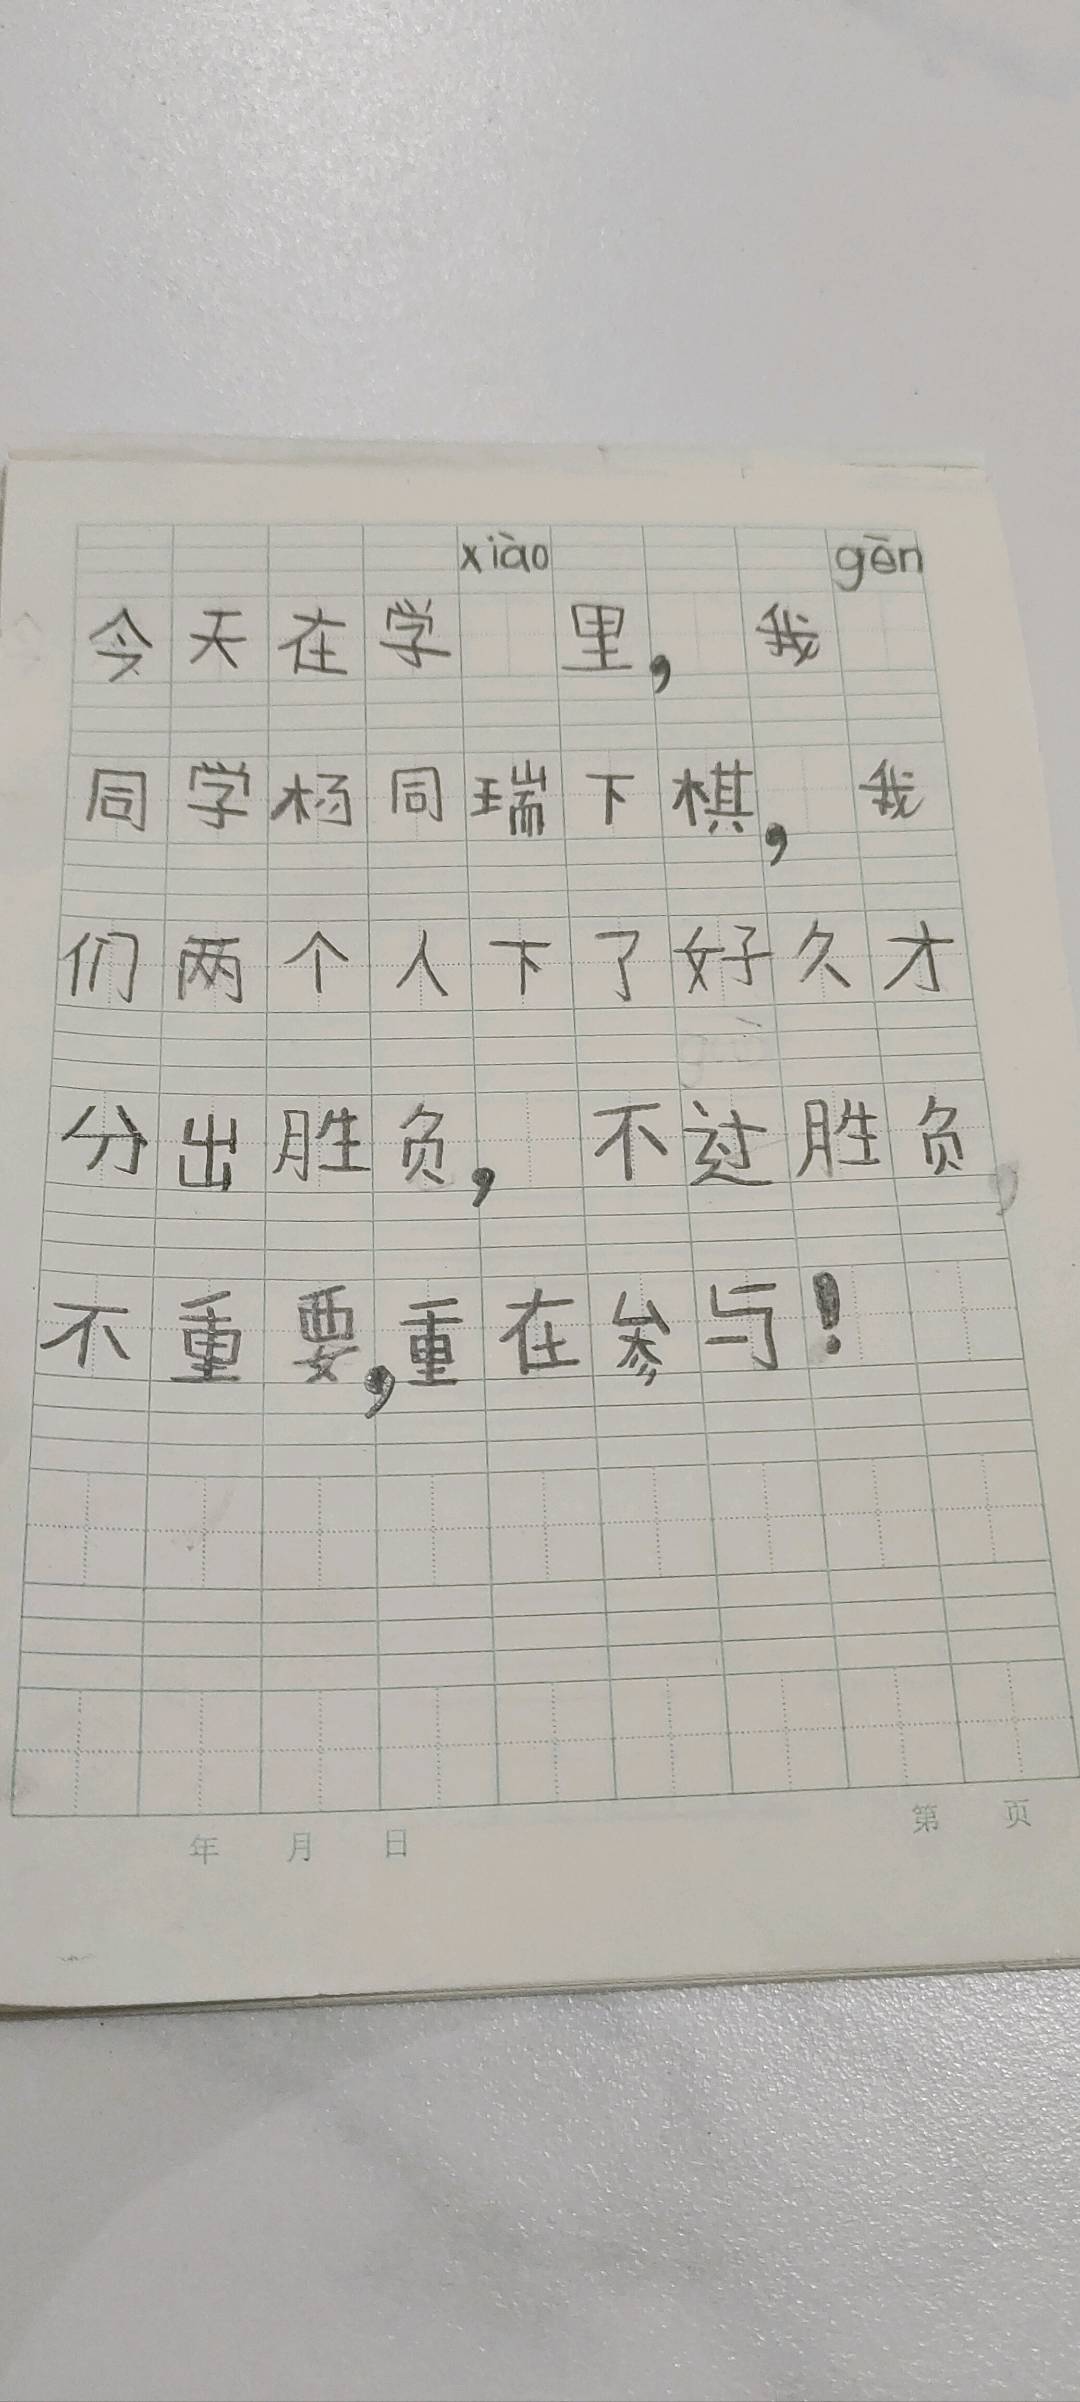 xiào gēn
今天在学 里，我
同学杨同瑞下棋，我
们两个人下了好久才
分出胜负，不过胜负，
不重要，重在参与！
年 月 日 第 页